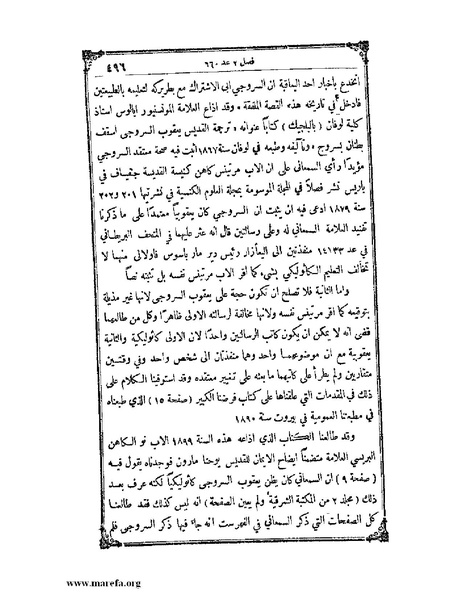 www.marefa.org
فصل ٢ عد ٦٦٠
٤٩٦
انخدع باخبار احد اليعاقبة ان السروجي ابى الاشتراك مع بطريركه لتعليمه بالطبيعتين
فادخل في تاريخه هذه القصة الملفقة . وقد اذاع العلامة المونسنيور ابالوس استاذ
كلية لوفان ( بالبلجيك ) كتابًا عنوانه . ترجمة القديس يعقوب السروجي اسقف
بطنان بسروج . وتآليفه وطبعه في لوفان سنة ١٨٦٧ اثبت فيه صحة معتقد السروجي
مؤيدًا رأي السمعاني على ان الاب مرتينس كاهن كنيسة القديسة جنفياف في
باريس نشر فصلاً في المجلة الموسومة بمجلة العلوم الكنسية في نشرتيها ٢٠١ و٢٠٢
سنة ١٨٧٩ ادعى فيه ان يثبت ان السروجي كان يعقوبيًا معتمدًا على ما ذكرنا
تفنيد العلامة السمعاني له وعلى رسالتين قال انه عثر عليهما في المتحف البريطاني
في عد ١٤٦٣٣ منفذتين الى اليعازار رئيس دير مار باسوس فالاولى منهما لا
تخالف التعليم الكاثوليكي بشيء كما اقر الاب مرتينس نفسه بل تثبته نصًا
واما الثانية فلا تصلح ان تكون حجة على يعقوب السروجي لانها غير مذيلة
بتوقيعه كما اقر مرتينس نفسه ولانها مخالفة لرسالته الاولى ظاهرًا وكل من طالعهما
قضى انه لا يمكن ان يكون كاتب الرسالتين واحدًا لان الاولى كاثوليكية والثانية
يعقوبية مع ان موضوعهما واحد وهما منفذتان الى شخص واحد وفي وقتين
متقاربين ولم يطرأ على كاتبهما ما بعثه على تغيير معتقده وقد استوفينا الكلام على
ذلك في المقدمات التي علقناها على كتاب فرضنا الكبير ( صفحة ١٥ ) الذي طبعناه
في مطبعتنا العمومية في بيروت سنة ١٨٩٠
وقد طالعنا الكتاب الذي اذاعه هذه السنة ١٨٩٩ الاب نو الكاهن
البريسي العلامة متضمنًا ايضاح الايمان للقديس يوحنا مارون فوجدناه يقول فيه
( صفحة ٩ ) ان السمعاني كان يظن يعقوب السروجي كاثوليكيًا لكنه عرف بعد
ذلك ( مجلد ٢ من المكتبة الشرقية ولم يعين الصفحة ) انه ليس كذلك فقد طالعنا
كل الصفحات التي ذكر السمعاني في الفهرست انه جاء فيها ذكر السروجي فلم